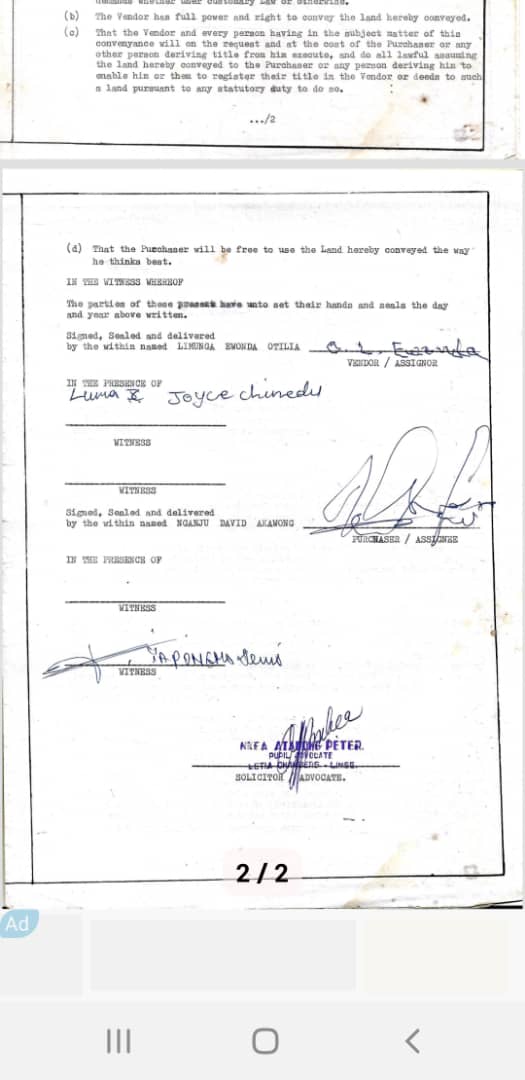 (b) The Vendor has full power and right to convey the land hereby conveyed.
(c) That the Vendor and every person having in the subject matter of this
conveyance will on the request and at the cost of the Purchaser or any
other person deriving title from him execute, and do all lawful assuming
the land hereby conveyed to the Purchaser or any person deriving him to
enable him or them to register their title in the Vendor or deeds to such
a land pursuant to any statutory duty to do so.
.../2
(d) That the Purchaser will be free to use the Land hereby conveyed the way
he thinks best.
IN THE WITNESS WHEREOF
The parties of these present have unto set their hands and seals the day
and year above written.
Signed, Sealed and delivered
by the within named LIMUNGA EWONDA OTILIA
VENDOR / ASSIGNOR
IN THE PRESENCE OF
Luma Joyce chinedu
WITNESS
WITNESS
Signed, Sealed and delivered
by the within named NGANJU DAVID AKAWONG
PURCHASER / ASSIGNEE
IN THE PRESENCE OF
WITNESS
WITNESS
PETER.
PUPIL ADVOCATE
SOLICITOR / ADVOCATE.
2/2
Ad